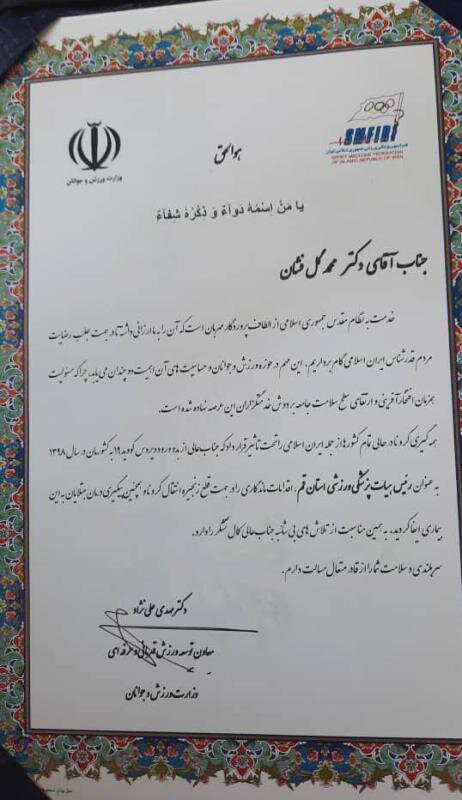 وزارت ورزش و جوانان
SMFIRI
فدراسیون پزشکی ورزشی جمهوری اسلامی ایران
SPORT MEDICINE FEDERATION
OF ISLAMIC REPUBLIC OF IRAN
هوالحق
یا مَنْ اِسْمُهُ دَواءٌ وَ ذِکْرُهُ شِفاءٌ
جناب آقای دکتر محمد گل فشان
خدمت به نظام مقدس جمهوری اسلامی از الطاف پروردگار مهربان است که آن را به ما ارزانی داشته تا در جهت جلب رضایت
مردم قدرشناس ایران اسلامی گام برداریم. این مهم در حوزه ورزش و جوانان و حساسیت های آن اهمیت دو چندان می یابد، چرا که مسئولیت
همزمان افتخارآفرینی و ارتقای سطح سلامت جامعه بر دوش خدمتگزاران این عرصه نهاده شده است.
همه گیری کرونا در حالی تمام کشورها از جمله ایران اسلامی را تحت تأثیر قرار داد که جنابعالی از بدو ورود ویروس کووید ۱۹ به کشورمان در سال ۱۳۹۸
به عنوان رئیس هیات پزشکی ورزشی استان قم، اقدامات ماندگاری را در جهت قطع زنجیره انتقال کرونا و همچنین پیگیری درمان مبتلایان به این
بیماری ایفا کردید. به همین مناسبت از تلاش های بی شائبه جناب عالی کمال تشکر را دارم.
سربلندی و سلامت شما را از قادر متعال مسالت دارم.
دکتر مهدی علی نژاد
معاون توسعه ورزش قهرمانی و حرفه ای
وزارت ورزش و جوانان